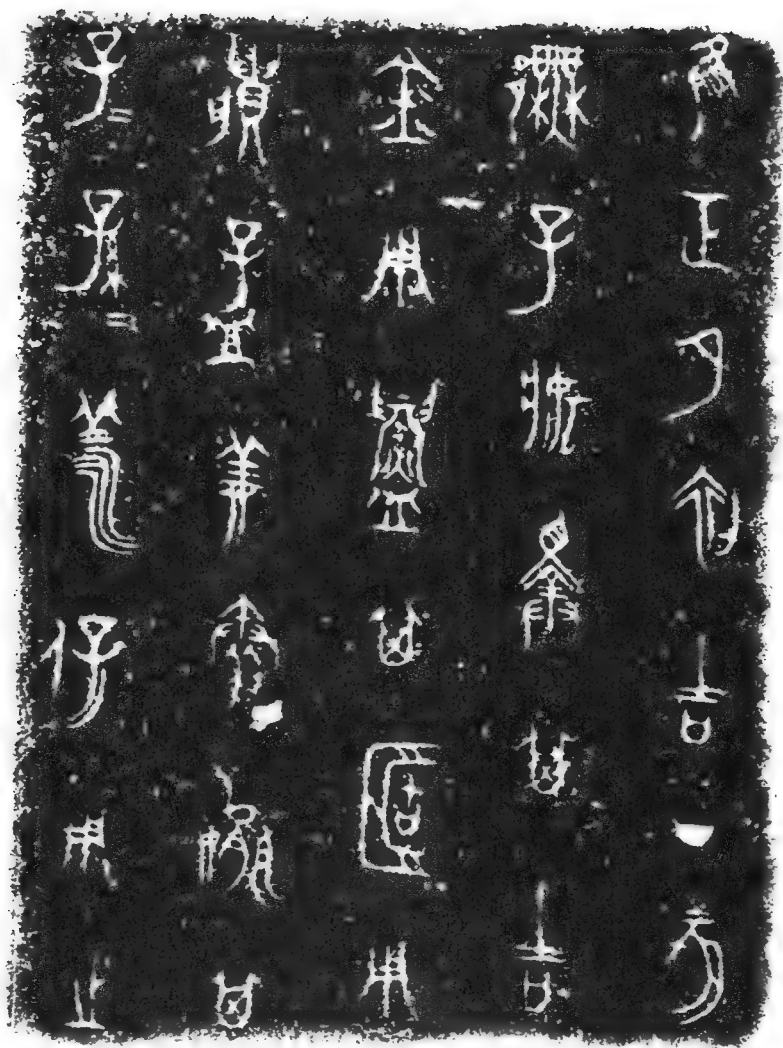 隹正月初吉丁亥
鄦子妝擇其吉
金用鑄其簠用
媵孟姜秦嬴其
子=孫=羕保用之